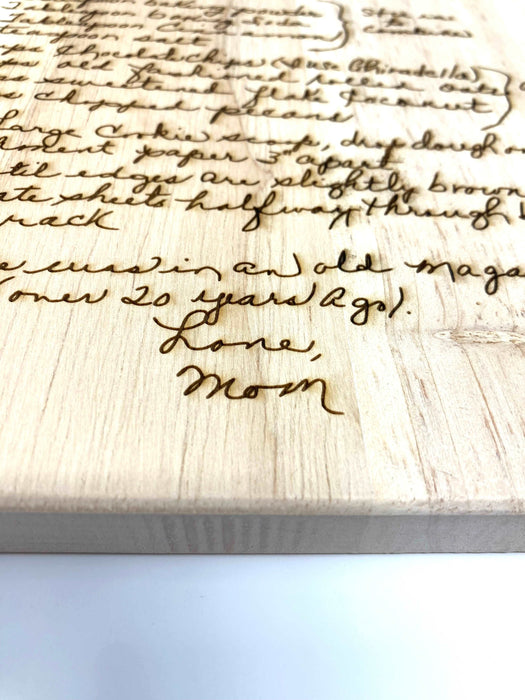 Tablespoon baking powder
Tablespoon baking soda
teaspoon salt
chocolate chips (I use Ghirardelli)
old fashioned rolled oats
sweetened flake coconut
chopped pecans
large cookie scoop, drop dough on
ment paper 3" apart
til edges are slightly brown
ate sheets halfway through b
rack
e was in an old maga
(over 20 years ago).
Love,
Mom